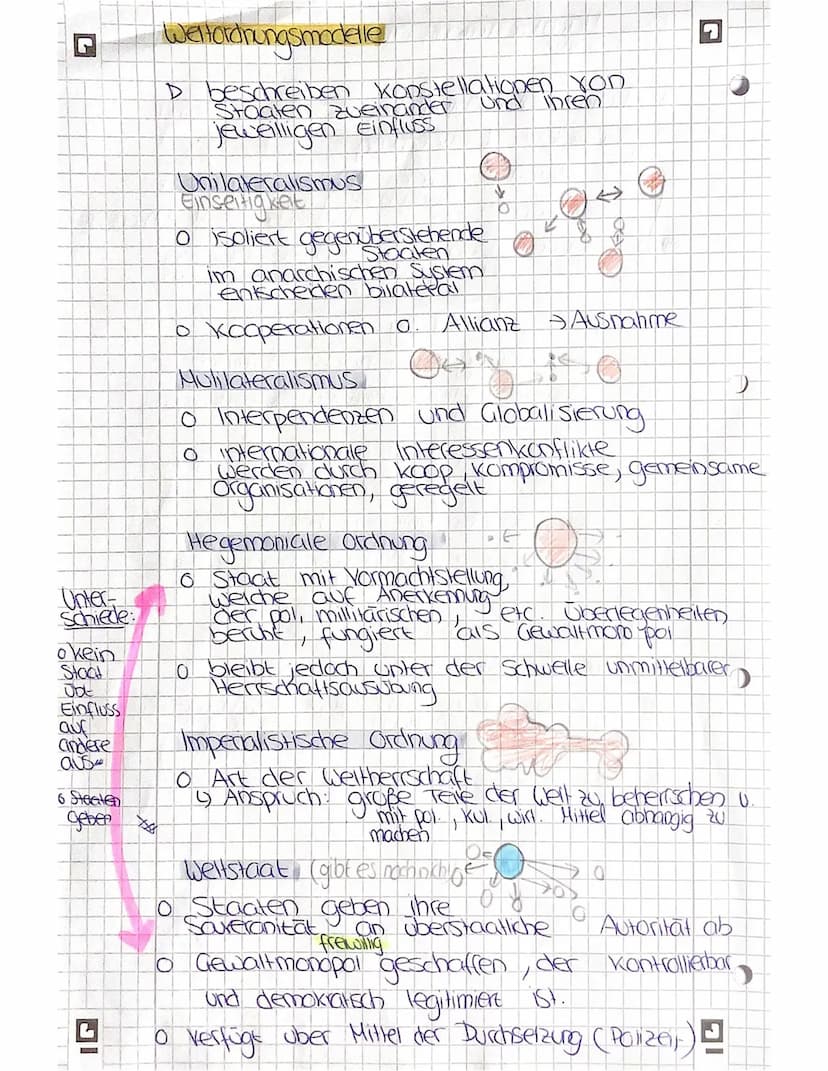 Weltordnungsmodelle
D beschreiben Konstellationen von
Staaten zueinander und ihren
jeweiligen Einfluss
Unilateralismus
Einseitigkeit
O isoliert gegenüberstehende
Staaten
im anarchischen System
entscheiden bilateral
O Kooperationen o. Allianz → Ausnahme
Mulilateralismus
O Interpendenzen und Globalisierung
O internationale Interessenkonflikte
werden durch Koop, Kompromisse, gemeinsame
Organisationen, geregelt
Hegemoniale Ordnung
O Staat mit Vormachtstellung,
welche auf Anerkennung
der pol, millitärischen, etc. Überlegenheiten
beruht, fungiert als Gewaltmonopol
O bleibt jedoch unter der Schwelle unmittelbarer
Herrschaftsausübung
Unter-
schiede:
o kein
Staat
übt
Einfluss
auf
andere
aus
o Staaten
geben
Imperialistische Ordnung
O Art der Weltherrschaft
↳ Anspruch: große Teile der Welt zu beherrschen u.
mit pol., kul., wirt. Mittel abhängig zu
machen
Weltstaat (gibt es noch nicht)
O Staaten geben ihre
Souveränität an überstaatliche Autorität ab
freiwillig
O Gewaltmonopol geschaffen, der kontrollierbar
und demokratisch legitimiert ist.
O verfügt über Mittel der Durchsetzung (Polizei,-)